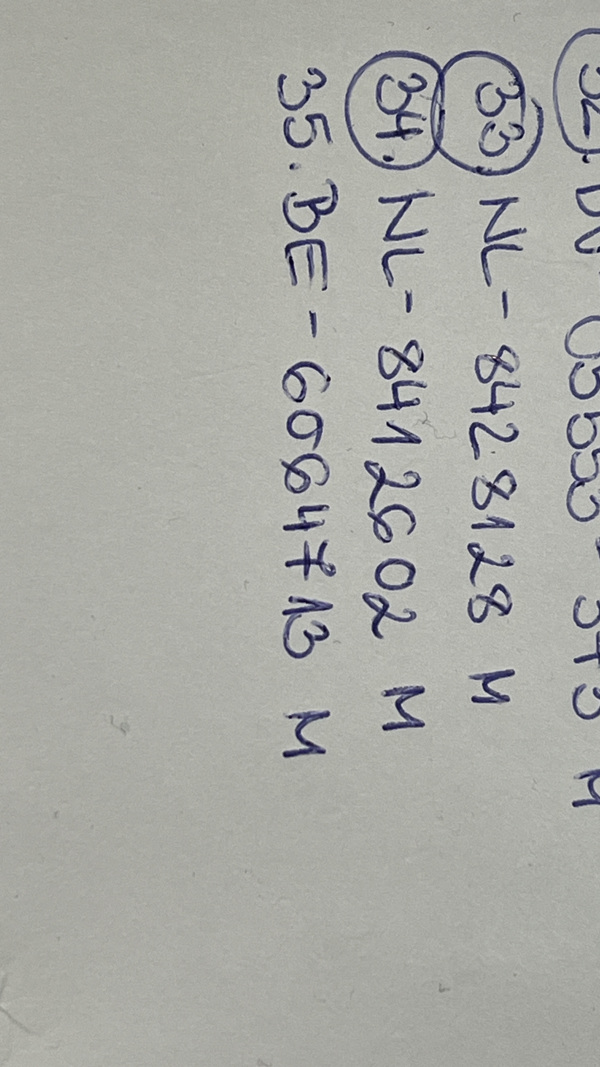 32. DV 05553-343 M
33. NL-8428128 M
34. NL-8412602 M
35. BE-6064713 M